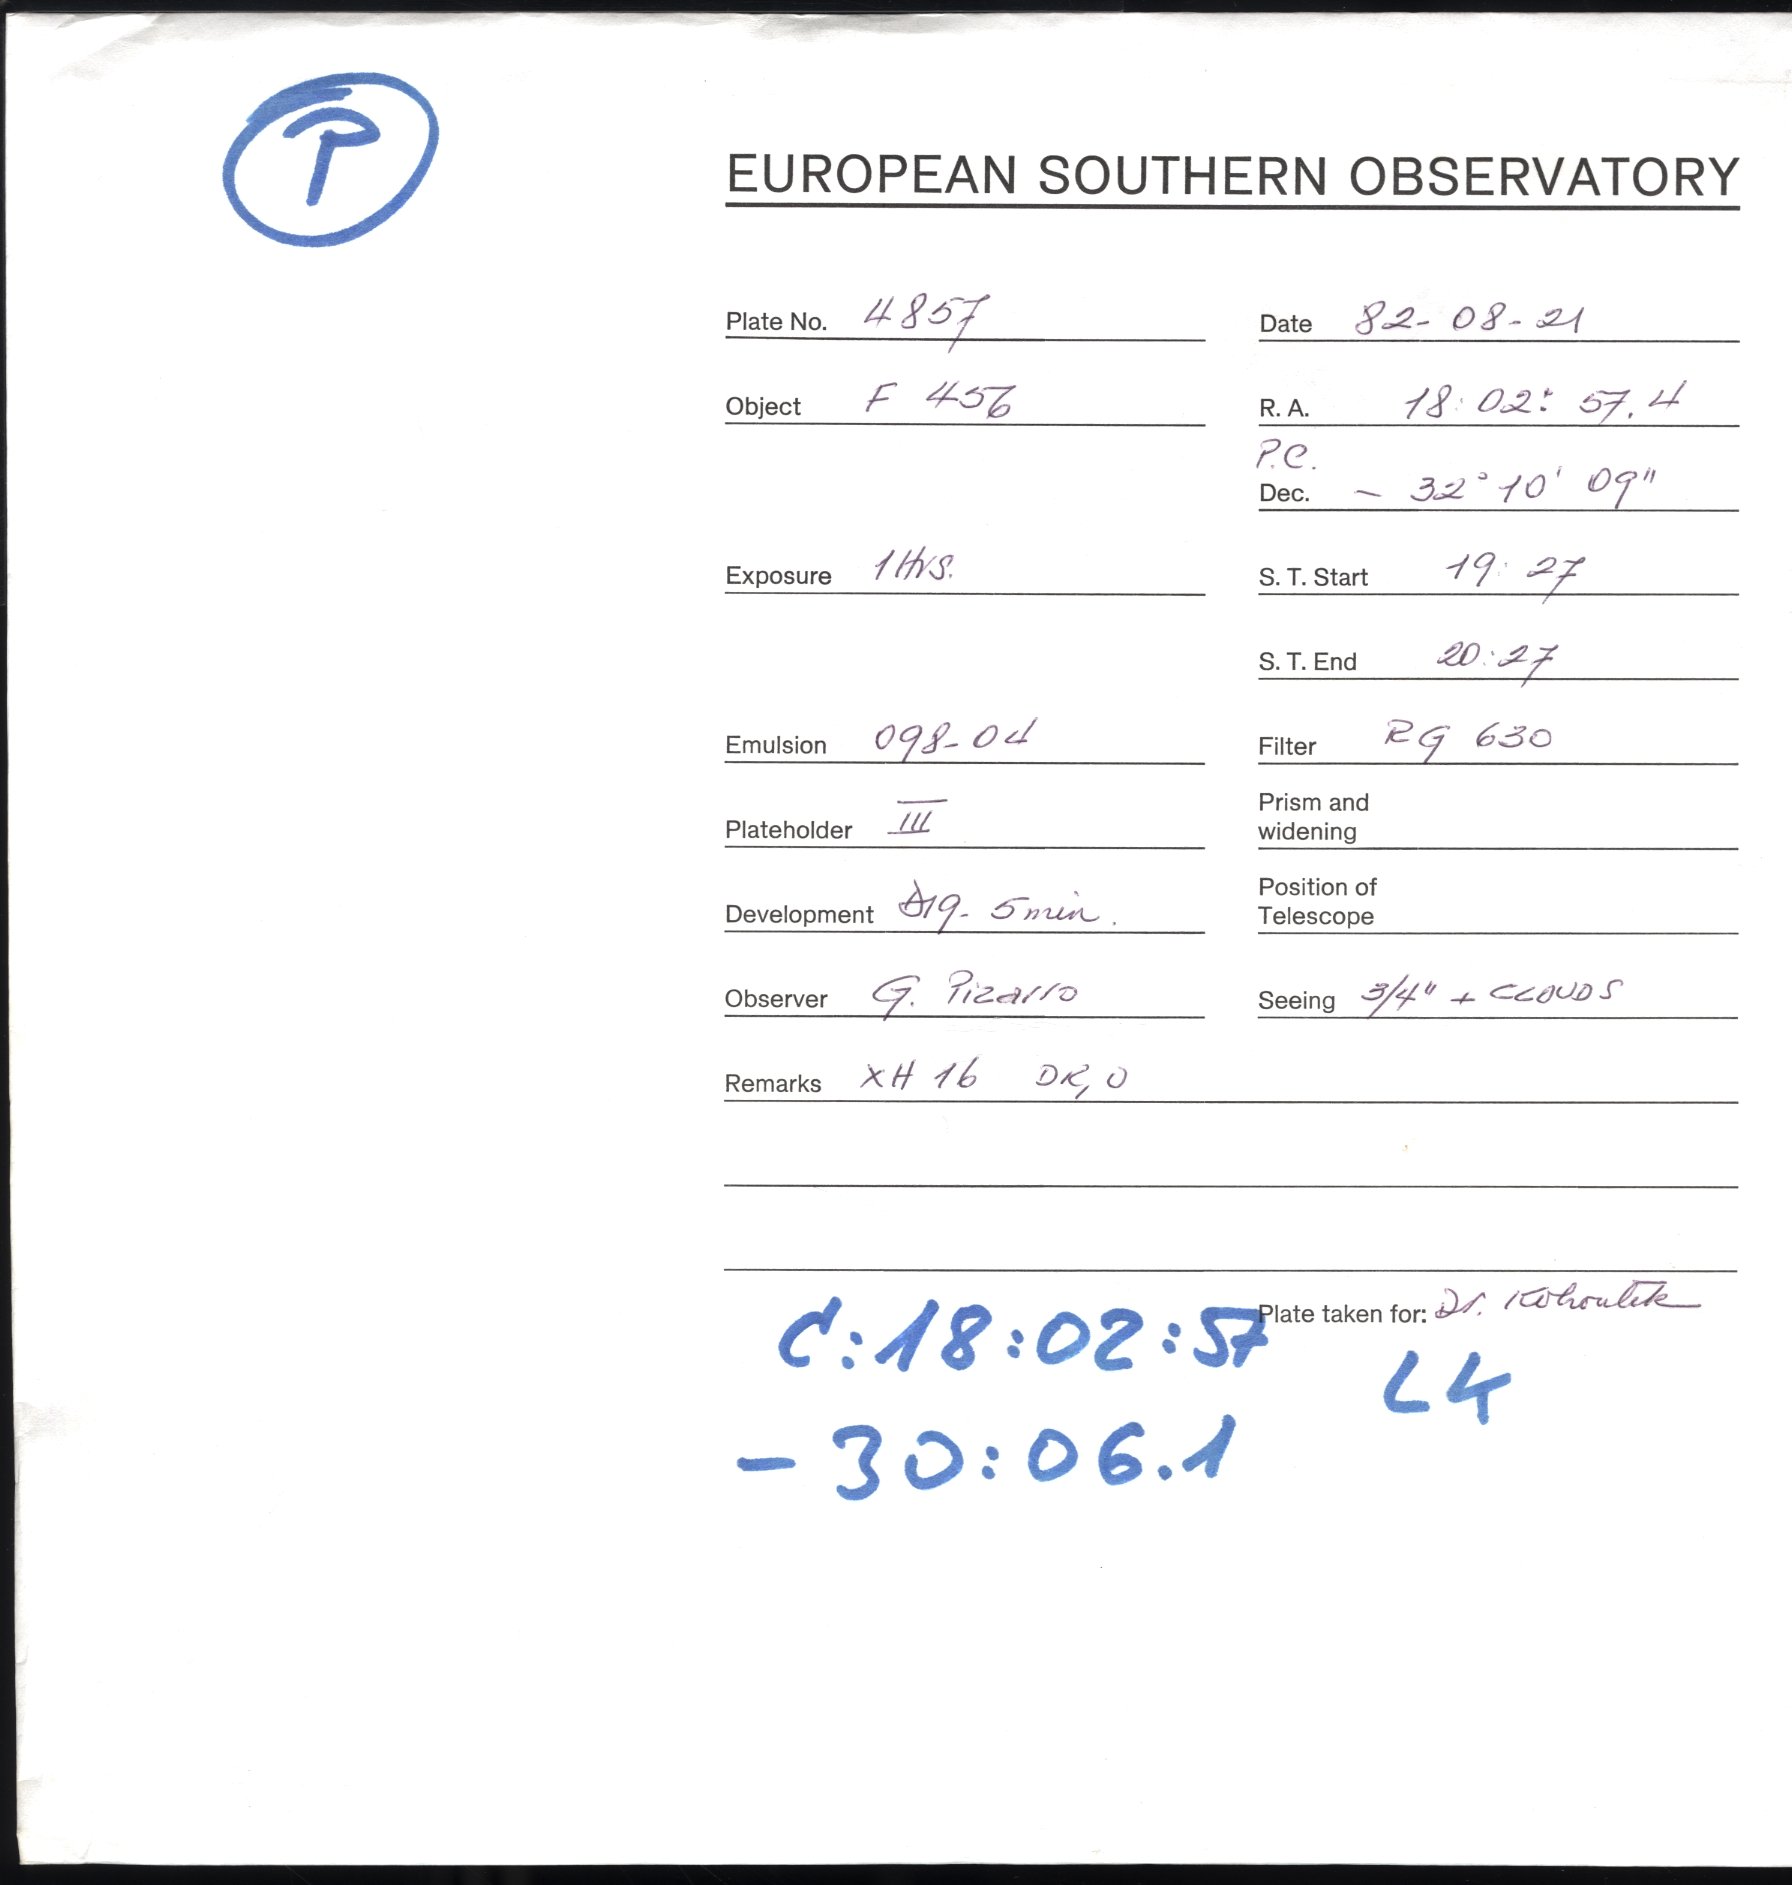 P
EUROPEAN SOUTHERN OBSERVATORY
Plate No. 4857 Date 82-08-21
Object F 456 R. A. 18:02:57.4
P.C.
Dec. - 32° 10' 09"
Exposure 1 Hrs. S. T. Start 19:27
S. T. End 20:27
Emulsion 098-04 Filter RG 630
Plateholder III Prism and
widening
Development D19- 5 min. Position of
Telescope
Observer G. Pizarro Seeing 3/4" + CLOUDS
Remarks XH 16 DK, 0
Plate taken for: Dr. Kohoutek
C:18:02:57
L4
-30:06.1